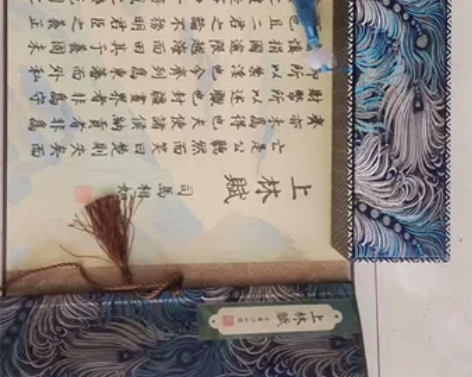 上林賦
司馬相如
亡是公听然而笑曰楚則失矣而
齊亦未爲得也夫使諸侯納貢者非爲
財幣所以述職也封疆畫界者非爲守
禦所以禁淫也今齊列爲東藩而外私
肅慎捐國踰限越海而田其于義固未
可也且二君之論不務明君臣之義正
上林賦